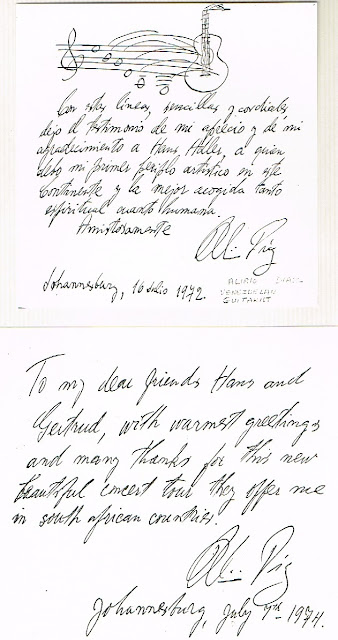 Con estas líneas, sencillas y cordiales,
dejo el testimonio de mi aprecio y de mi
agradecimiento a Hans Adler, a quien
debo mi primer periplo artístico en este
Continente y la mejor acogida tanto
espiritual cuanto humana.
Amistosamente
Johannesburg, 16 Julio 1972.
ALIRIO DIAZ
VENEZUELAN
GUITARIST
To my dear friends Hans and
Gertrud, with warmest greetings
and many thanks for this new
beautiful concert tour they offer me
in south african countries.
Johannesburg, July 9th 1974.